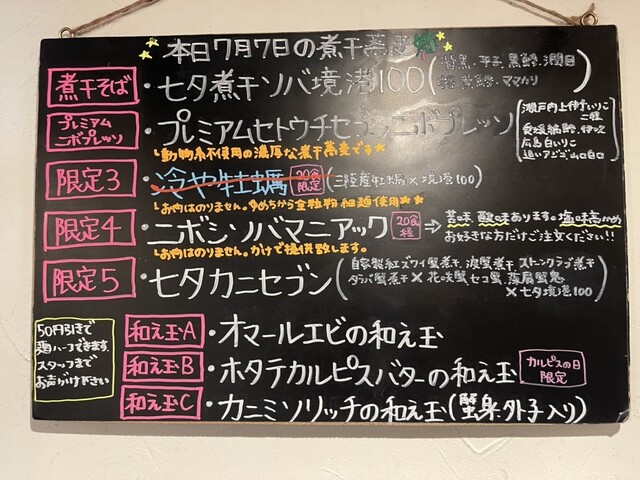 本日7月7日の煮干蕎麦
煮干そば ・七夕煮干ソバ境港100
プレミアムニボプレッソ ・プレミアムセトウチセブンニボプレッソ
瀬戸内上伊吹いりこ二種
広島白いりこ
└動物系不使用の濃厚な煮干蕎麦です☆
限定3 ・冷や牡蠣 20食限定 (三陸産牡蠣×境港100)
└お肉はのりません。
限定4 ・ニボシソバマニアック 20食程 ⇒ 苦味、酸味あります。塩味高め
お好きな方だけご注文ください!!
└お肉はのりません。かけで提供致します。
限定5 ・七夕カニセブン
自家製紅ズワイ蟹煮干、渡蟹煮干
タラバ蟹煮干×花咲蟹、セコ蟹
×七夕境港100
50円引きで
麺ハーフできます。
スタッフまで
お声がけ下さい
和え玉A ・オマールエビの和え玉
和え玉B ・ホタテカルピスバターの和え玉 カルピスの日限定
和え玉C ・カニミソリッチの和え玉(蟹身、外子入り)